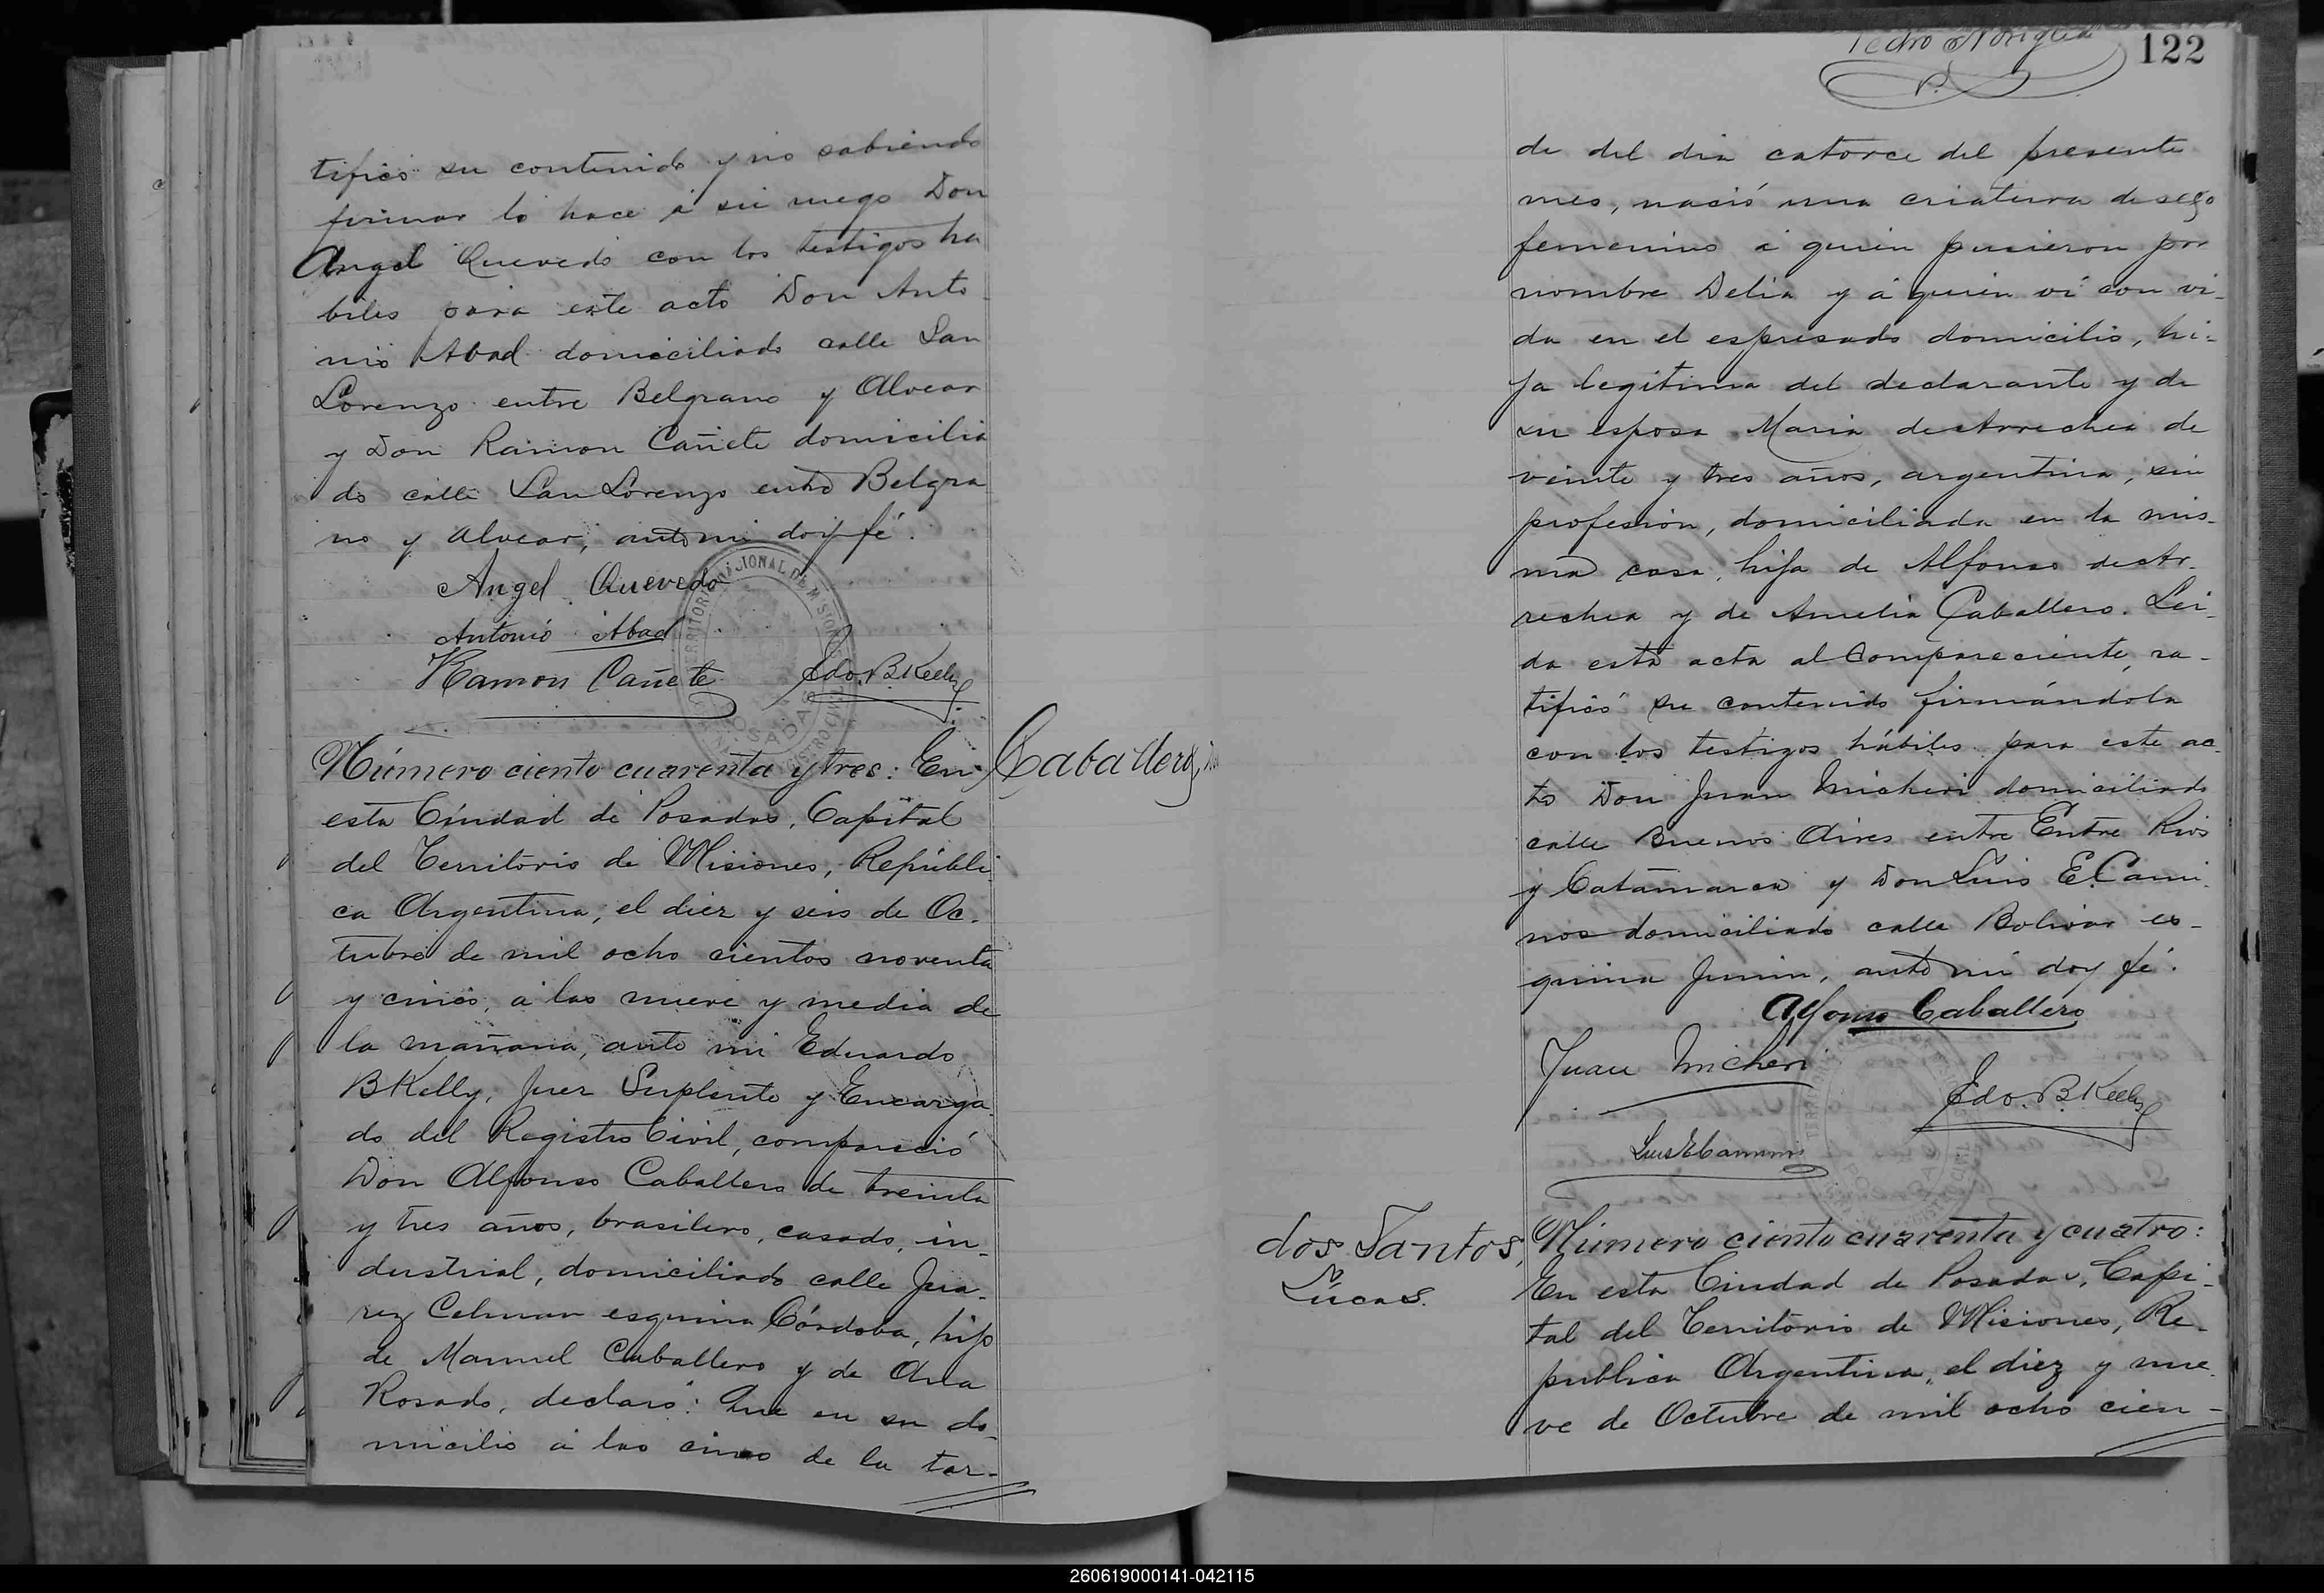 tificó su contenido y no sabiendo
firmar lo hace á su ruego Don
Angel Quevedo con los testigos ha
biles para este acto Don Anto-
nio Abad domiciliado calle San
Lorenzo entre Belgrano y Alvear
y Don Ramon Cañete domicilia
do calle San Lorenzo entre Belgra
no y Alvear, ante mi doy fé.
Angel Quevedo
Antonio Abad
Ramon Cañete Edo. B Kelly
TERRITORIO NACIONAL DE MISIONES
POSADAS
REGISTRO CIVIL
Número ciento cuarenta y tres: En
Caballero,
esta Ciudad de Posadas, Capital
del Territorio de Misiones, Repúbli-
ca Argentina, el diez y seis de Oc-
tubre de mil ocho cientos noventa
y cinco, a las nueve y media de
la mañana, ante mi Eduardo
B Kelly, Juez Suplente y Encarga-
do del Registro Civil, compareció
Don Alfonso Caballero de treinta
y tres años, brasilero, casado, in-
dustrial, domiciliado calle Jua-
rez Celman esquina Córdoba, hijo
de Manuel Caballero y de Ana
Rosado, declaró: Que en su do-
micilio á las cinco de la tar-
Pedro Noriega
122
de del dia catorce del presente
mes, nació una criatura de sexo
femenino á quien pusieron por
nombre Delia y á quien ví con vi-
da en el espresado domicilio, hi-
ja legítima del declarante y de
su esposa Maria de Arrechea de
veinte y tres años, argentina, sin
profesión, domiciliada en la mis-
ma casa, hija de Alfonso de Ar-
rechea y de Amelia Caballero. Lei-
da esta acta al compareciente, ra-
tificó su contenido firmándola
con los testigos hábiles para este ac-
to Don Juan Micheri domiciliado
calle Buenos Aires entre Entre Rios
y Catamarca y Don Luis E. Cami-
nos domiciliado calle Bolivar es-
quina Junin, ante mi doy fé.
Alfonso Caballero
Juan Micheri
Edo. B Kelly
Luis E Caminos
dos Santos,
Lúcas.
Número ciento cuarenta y cuatro:
En esta Ciudad de Posadas, Capi-
tal del Territorio de Misiones, Re-
publica Argentina, el diez y nue-
ve de Octubre de mil ocho cien-
260619000141-042115